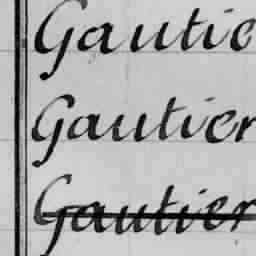 Gautie
Gautier
Gautier